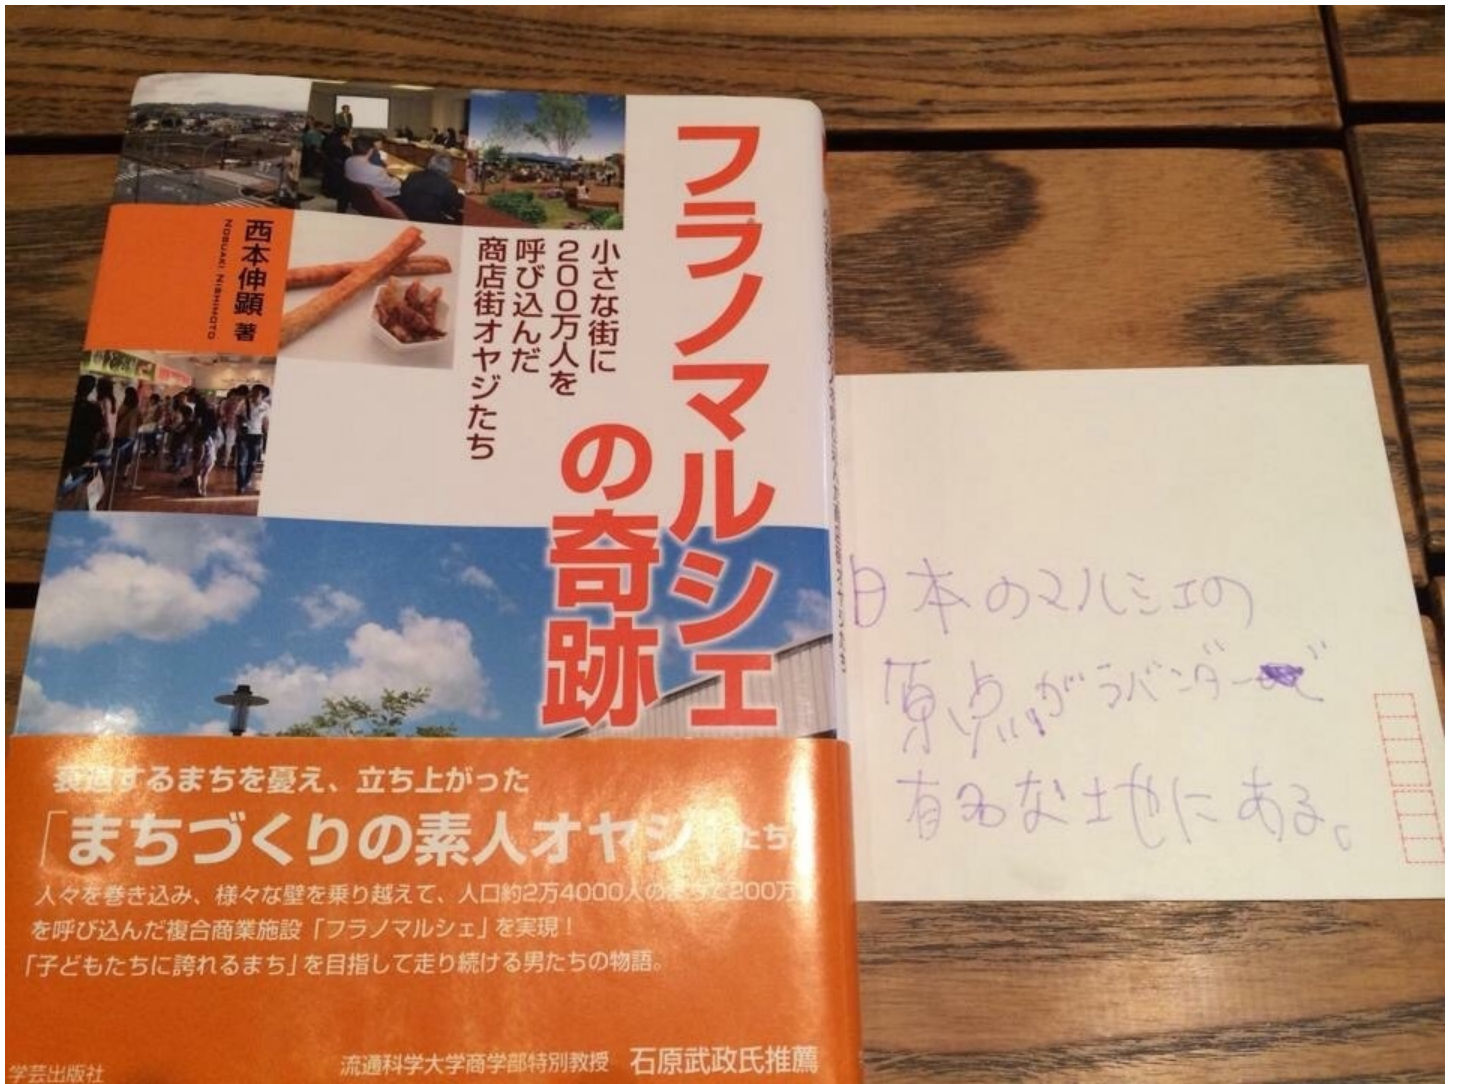 フラノマルシェ
の奇跡
小さな街に
200万人を
呼び込んだ
商店街オヤジたち
西本伸顕 著
NOBUAKI NISHIMOTO
衰退するまちを憂え、立ち上がった
「まちづくりの素人オヤジ」たち
人々を巻き込み、様々な壁を乗り越えて、人口約2万4000人のまちで200万
を呼び込んだ複合商業施設「フラノマルシェ」を実現！
「子どもたちに誇れるまち」を目指して走り続ける男たちの物語。
流通科学大学商学部特別教授 石原武政氏推薦
学芸出版社
日本のマルシェの
原点がラバンダーで
有名な土地にある。